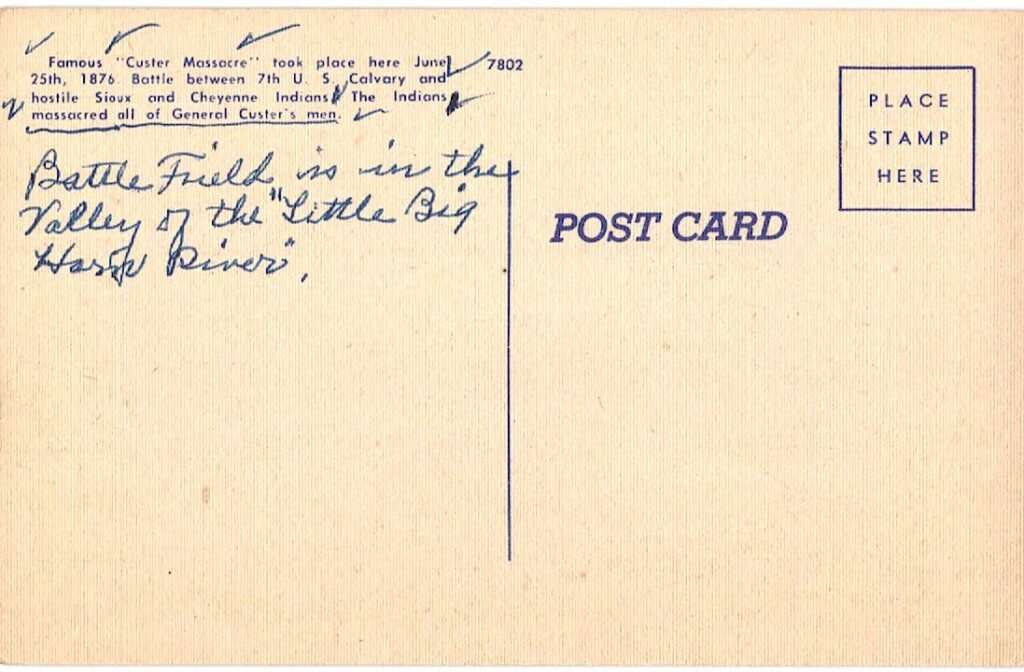 Famous "Custer Massacre" took place here June
25th, 1876. Battle between 7th U. S. Calvary and
hostile Sioux and Cheyenne Indians. The Indians
massacred all of General Custer's men.
7802
Battle Field is in the
Valley of the "Little Big
Horn River".
POST CARD
PLACE
STAMP
HERE